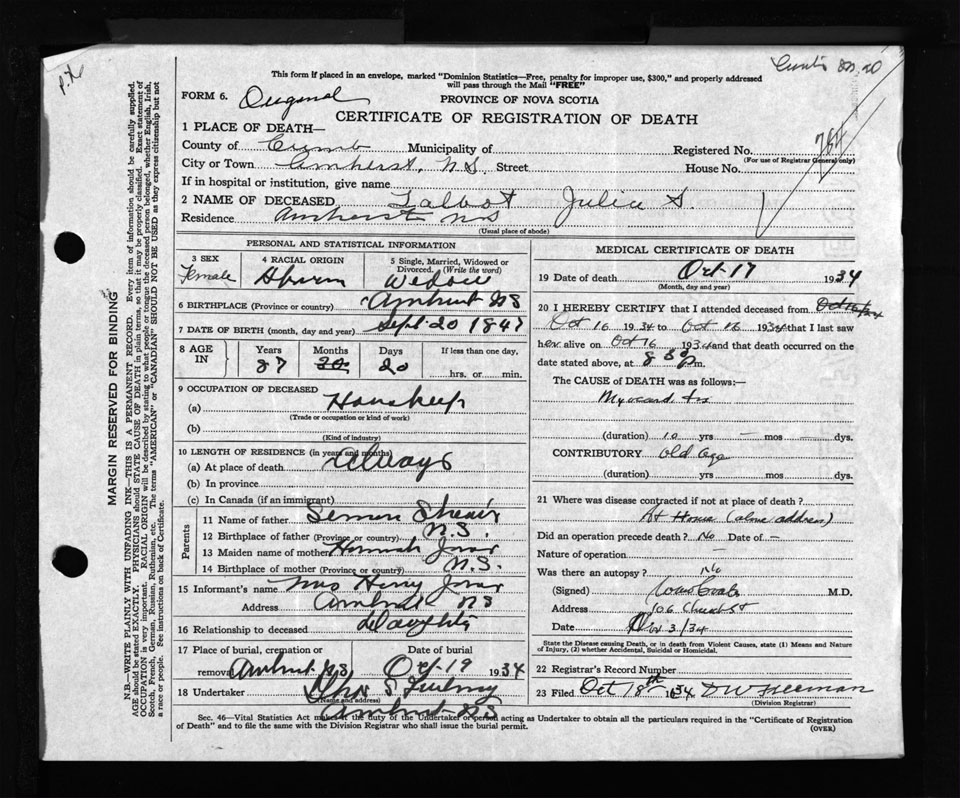 This form if placed in an envelope, marked "Dominion Statistics—Free, penalty for improper use, $300," and properly addressed
will pass through the Mail "FREE"
FORM 6. Original
PROVINCE OF NOVA SCOTIA
CERTIFICATE OF REGISTRATION OF DEATH
1 PLACE OF DEATH—
County of Cumb Municipality of
Registered No. 754
(For use of Registrar General only)
City or Town Amherst, N.S. Street House No.
If in hospital or institution, give name
2 NAME OF DECEASED Talbot Julia S.
Residence Amherst NS
(Usual place of abode)
PERSONAL AND STATISTICAL INFORMATION
3 SEX
Female
4 RACIAL ORIGIN
5 Single, Married, Widowed or
Divorced. (Write the word)
Widow
6 BIRTHPLACE (Province or country) Amherst NS
7 DATE OF BIRTH (month, day and year) Sept 20 1847
8 AGE IN
Years 87
Months
Days 20
If less than one day.
hrs. or min.
9 OCCUPATION OF DECEASED
(a)
(Trade or occupation or kind of work)
(b)
(Kind of industry)
10 LENGTH OF RESIDENCE (in years and months)
(a) At place of death Always
(b) In province
(c) In Canada (if an immigrant)
Parents
11 Name of father
12 Birthplace of father (Province or country) N.S.
13 Maiden name of mother Hannah
14 Birthplace of mother (Province or country) N.S.
15 Informant's name Mrs Henry
Address Amherst NS
16 Relationship to deceased Daughter
17 Place of burial, cremation or
removal Amherst NS
Date of burial
Oct 19 1934
18 Undertaker
(Name and address)
Amherst NS
MEDICAL CERTIFICATE OF DEATH
19 Date of death Oct 17 1934
(Month, day and year)
20 I HEREBY CERTIFY that I attended deceased from
Oct 16 1934 to Oct 16 1934 that I last saw
her alive on Oct 16 1934 and that death occurred on the
date stated above, at 8 30 p m.
The CAUSE of DEATH was as follows:—
(duration) 10 yrs — mos — dys.
CONTRIBUTORY Old Age
(duration) yrs mos dys.
21 Where was disease contracted if not at place of death?
At Home (above address)
Did an operation precede death? No Date of —
Nature of operation —
Was there an autopsy? No
(Signed) M.D.
Address 106 Church St
Date Nov 3/34
State the Disease causing Death, or in Death from Violent Causes, state (1) Means and
Nature of Injury, (2) whether Accidental, Suicidal or Homicidal.
22 Registrar's Record Number
23 Filed Oct 18th 1934 D W Freeman
(Division Registrar)
Sec. 46—Vital Statistics Act makes it the duty of the Undertaker or person acting as Undertaker to obtain all the particulars required in the "Certificate of Registration
of Death" and to file the same with the Division Registrar who shall issue the burial permit.
(OVER)
MARGIN RESERVED FOR BINDING
N.B.—WRITE PLAINLY WITH UNFADING INK—THIS IS A PERMANENT RECORD. Every item of information should be carefully supplied.
AGE should be stated EXACTLY. PHYSICIANS should STATE CAUSE OF DEATH in plain terms, so that it may be properly classified. Exact statement of
OCCUPATION is very important. RACIAL ORIGIN will be described by stating to what people or tongue the deceased person belonged, whether English, Irish,
Scotch, French, German, Russian, Ruthenian, etc. The terms "AMERICAN" or "CANADIAN" SHOULD NOT BE USED as they express citizenship but not
a race or people. See instructions on back of Certificate.